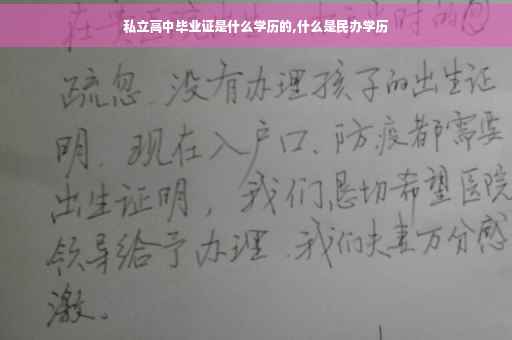 私立高中毕业证是什么学历的,什么是民办学历
疏忽.没有办理孩子的出生证
明.现在入户口、防疫都需要
出生证明,我们恳切希望医院
领导给予办理.我们夫妻万分感
激。